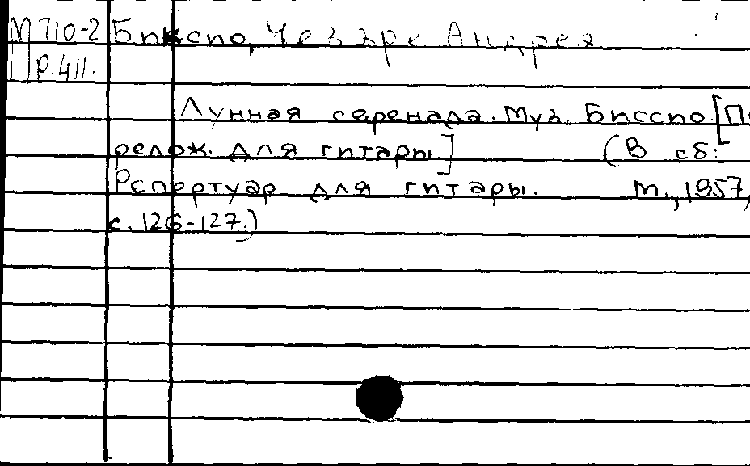 М 710-2 Биксио, Чезаре Андреа
Р.411.
Лунная серенада. Муз. Биксио. [Пе
релож. для гитары] (В сб:
Репертуар для гитары. М., 1957,
с. 126-127.)